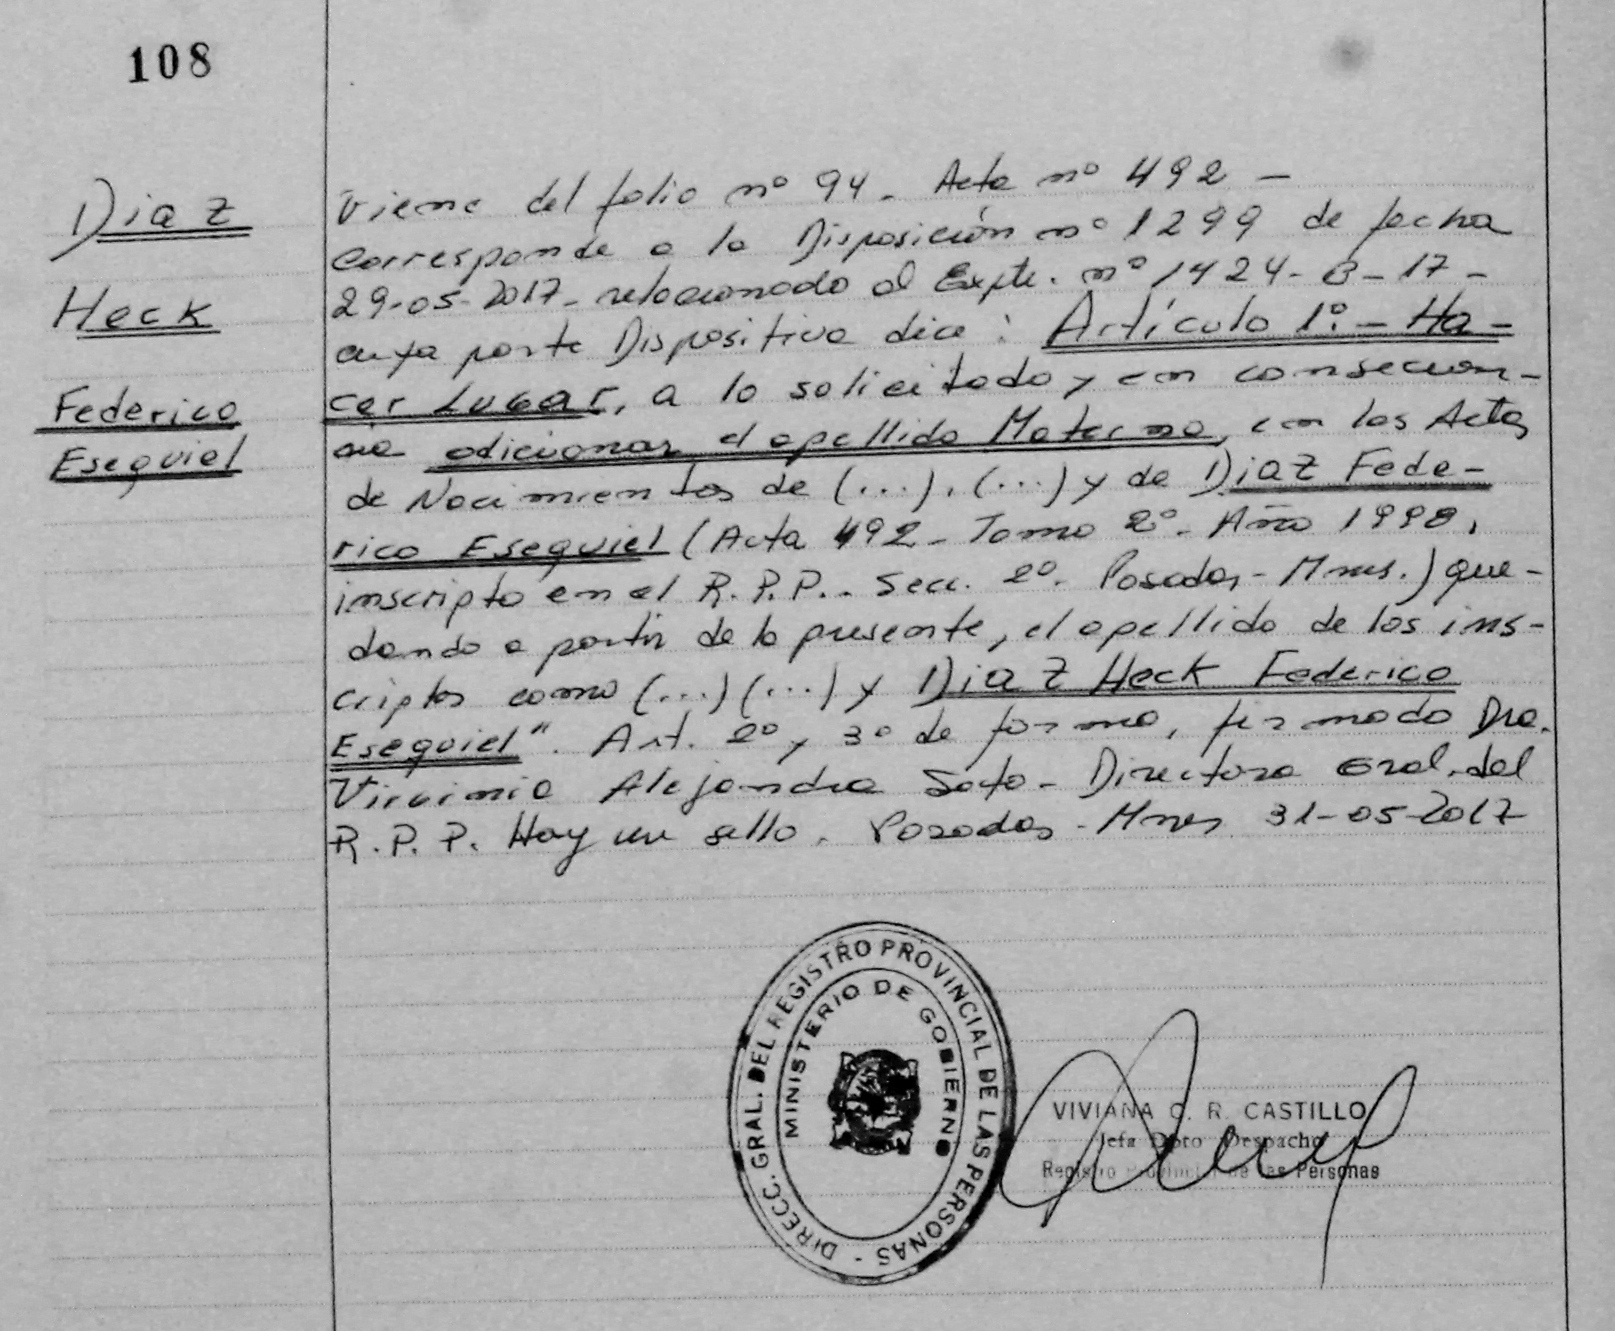 108
Diaz
Heck
Federico
Esequiel
Viene del folio nº 94. Acta nº 492 –
corresponde a la Disposición nº 1299 de fecha
29-05-2017- relacionado al Expte. nº 1424-B-17-
cuya parte Dispositiva dice: Artículo 1º.- Ha-
cer Lugar, a lo solicitado y en consecuen-
cia adicionar el apellido Materno, en las Actas
de Nacimientos de (...), (...) y de Diaz Fede-
rico Esequiel (Acta 492- Tomo 2º- Año 1998,
inscripto en el R.P.P.. Secc. 2º. Posadas- Mnes.) que-
dando a partir de la presente, el apellido de los ins-
criptos como (...) (...) y Diaz Heck Federico
Esequiel". Art. 2º y 3º de forma, firmado Dra.
Virginia Alejandra Soto- Directora Gral. del
R.P.P. Hay un sello. Posadas- Mnes 31-05-2017
DIRECC. GRAL. DEL REGISTRO PROVINCIAL DE LAS PERSONAS -
MINISTERIO DE GOBIERNO
VIVIANA C. R. CASTILLO
Jefa Dpto Despacho
Registro Provincial de las Personas